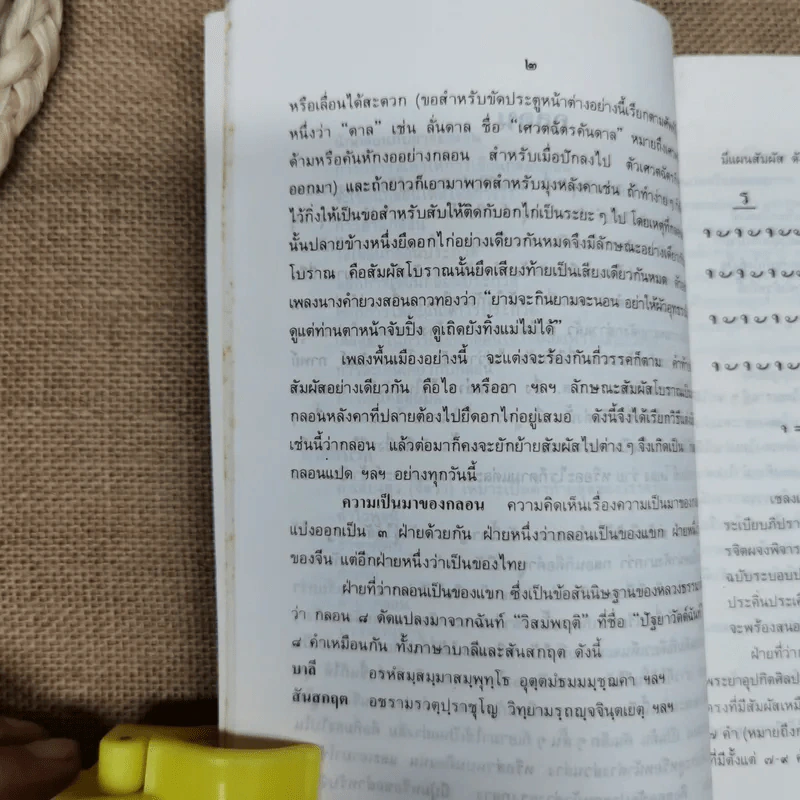 ๒
หรือเลื่อนได้สะดวก (ขอสำหรับขัดประตูหน้าต่างอย่างนี้เรียกตาม
หนึ่งว่า “ดาล” เช่น ลั่นดาล ชื่อ “เศวตฉัตรคันดาล” หมายถึง
ด้ามหรือคันหักงออย่างกลอน สำหรับเมื่อปักลงไป ตัวเศวตฉัตร
ออกมา) และถ้ายาวก็เอามาพาดสำหรับมุงหลังคาเช่น ถ้าทำง่าย ๆ
ไว้กิ่งให้เป็นขอสำหรับสับให้ติดกับอกไก่เป็นระยะ ๆ ไป โดยเหตุที่
นั้นปลายข้างหนึ่งยึดอกไก่อย่างเดียวกันหมดจึงมีลักษณะอย่างเดียว
โบราณ คือสัมผัสโบราณนั้นยึดเสียงท้ายเป็นเสียงเดียวกันหมด
เพลงนางคำยวงสอนลาวทองว่า “ยามจะกินยามจะนอน อย่าให้ผัว
ดูแต่ท่านตาหน้าจับปิ้ง ดูเถิดยังทิ้งแม่ไม่ได้”
เพลงพื้นเมืองอย่างนี้ จะแต่งจะร้องกันกี่วรรคก็ตาม
สัมผัสอย่างเดียวกัน คือไอ หรืออา ฯลฯ ลักษณะสัมผัสโบราณ
กลอนหลังคาที่ปลายต้องไปยึดอกไก่อยู่เสมอ ดังนี้จึงได้เรียกวิธี
เช่นนี้ว่ากลอน แล้วต่อมาก็คงจะยักย้ายสัมผัสไปต่าง ๆ จึงเกิดเป็น
กลอนแปด ฯลฯ อย่างทุกวันนี้
ความเป็นมาของกลอน ความคิดเห็นเรื่องความเป็นมาของ
แบ่งออกเป็น ๓ ฝ่ายด้วยกัน ฝ่ายหนึ่งว่ากลอนเป็นของแขก
ของจีน แต่อีกฝ่ายหนึ่งว่าเป็นของไทย
ฝ่ายที่ว่ากลอนเป็นของแขก ซึ่งเป็นข้อสันนิษฐานของหลวงธรรม
ว่า กลอน ๘ ดัดแปลงมาจากฉันท์ “วิสมพฤติ” ที่ชื่อ “ปัฐยาวัตต์ฉันท์
๘ คำเหมือนกัน ทั้งภาษาบาลีและสันสกฤต ดังนี้
บาลี อรหํสมฺสมฺมาสมฺพุทฺโธ อุตฺตมํธมฺมมฺชฺฌคา ฯลฯ
สันสกฤต อชรามรวตฺปฺราชฺโญ วิทฺยามรฺถญฺจจินฺตเยตฺ ฯลฯ
ร
ระเบียบ
ฉบับระบอบ
จะพร้องสนอ
ฝ่ายที่ว่า
๗ คำ (หมายถึง
ที่มีตั้งแต่ ๗-๙